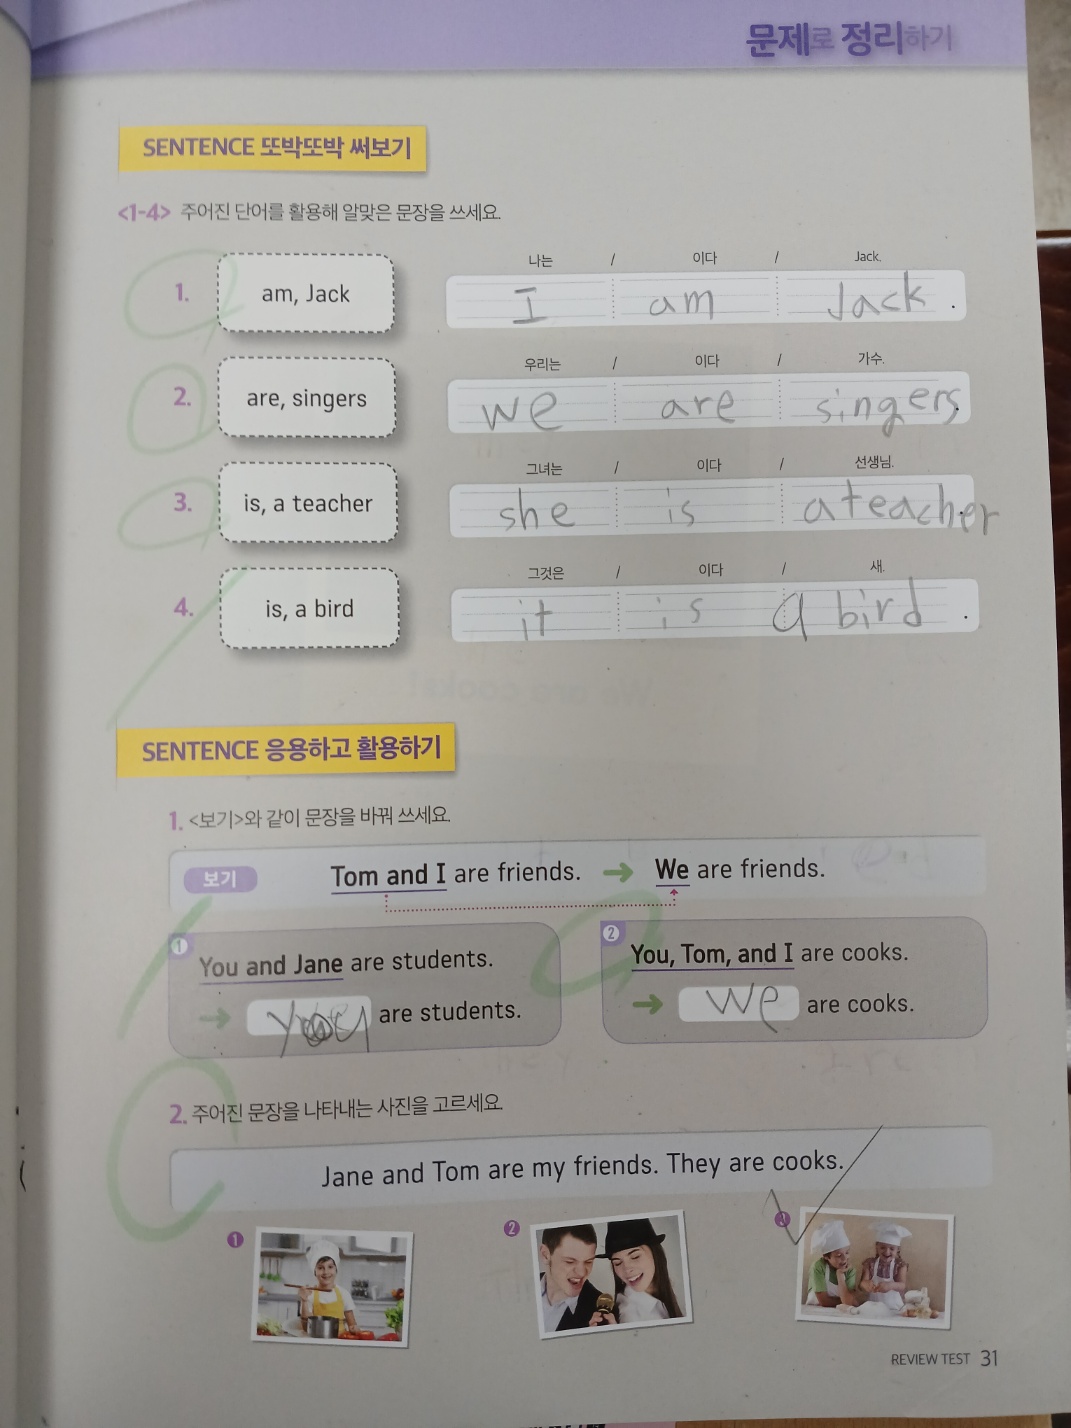 문제로 정리하기
SENTENCE 또박또박 써보기
<1-4> 주어진 단어를 활용해 알맞은 문장을 쓰세요.
나는 / 이다 / Jack.
1. am, Jack I am Jack .
우리는 / 이다 / 가수.
2. are, singers we are singers.
그녀는 / 이다 / 선생님.
3. is, a teacher she is a teacher.
그것은 / 이다 / 새.
4. is, a bird it is a bird .
SENTENCE 응용하고 활용하기
1. <보기>와 같이 문장을 바꿔 쓰세요.
보기 Tom and I are friends. → We are friends.
1 You and Jane are students.
→ are students.
2 You, Tom, and I are cooks.
→ we are cooks.
2. 주어진 문장을 나타내는 사진을 고르세요.
Jane and Tom are my friends. They are cooks.
1 2 3
REVIEW TEST 31